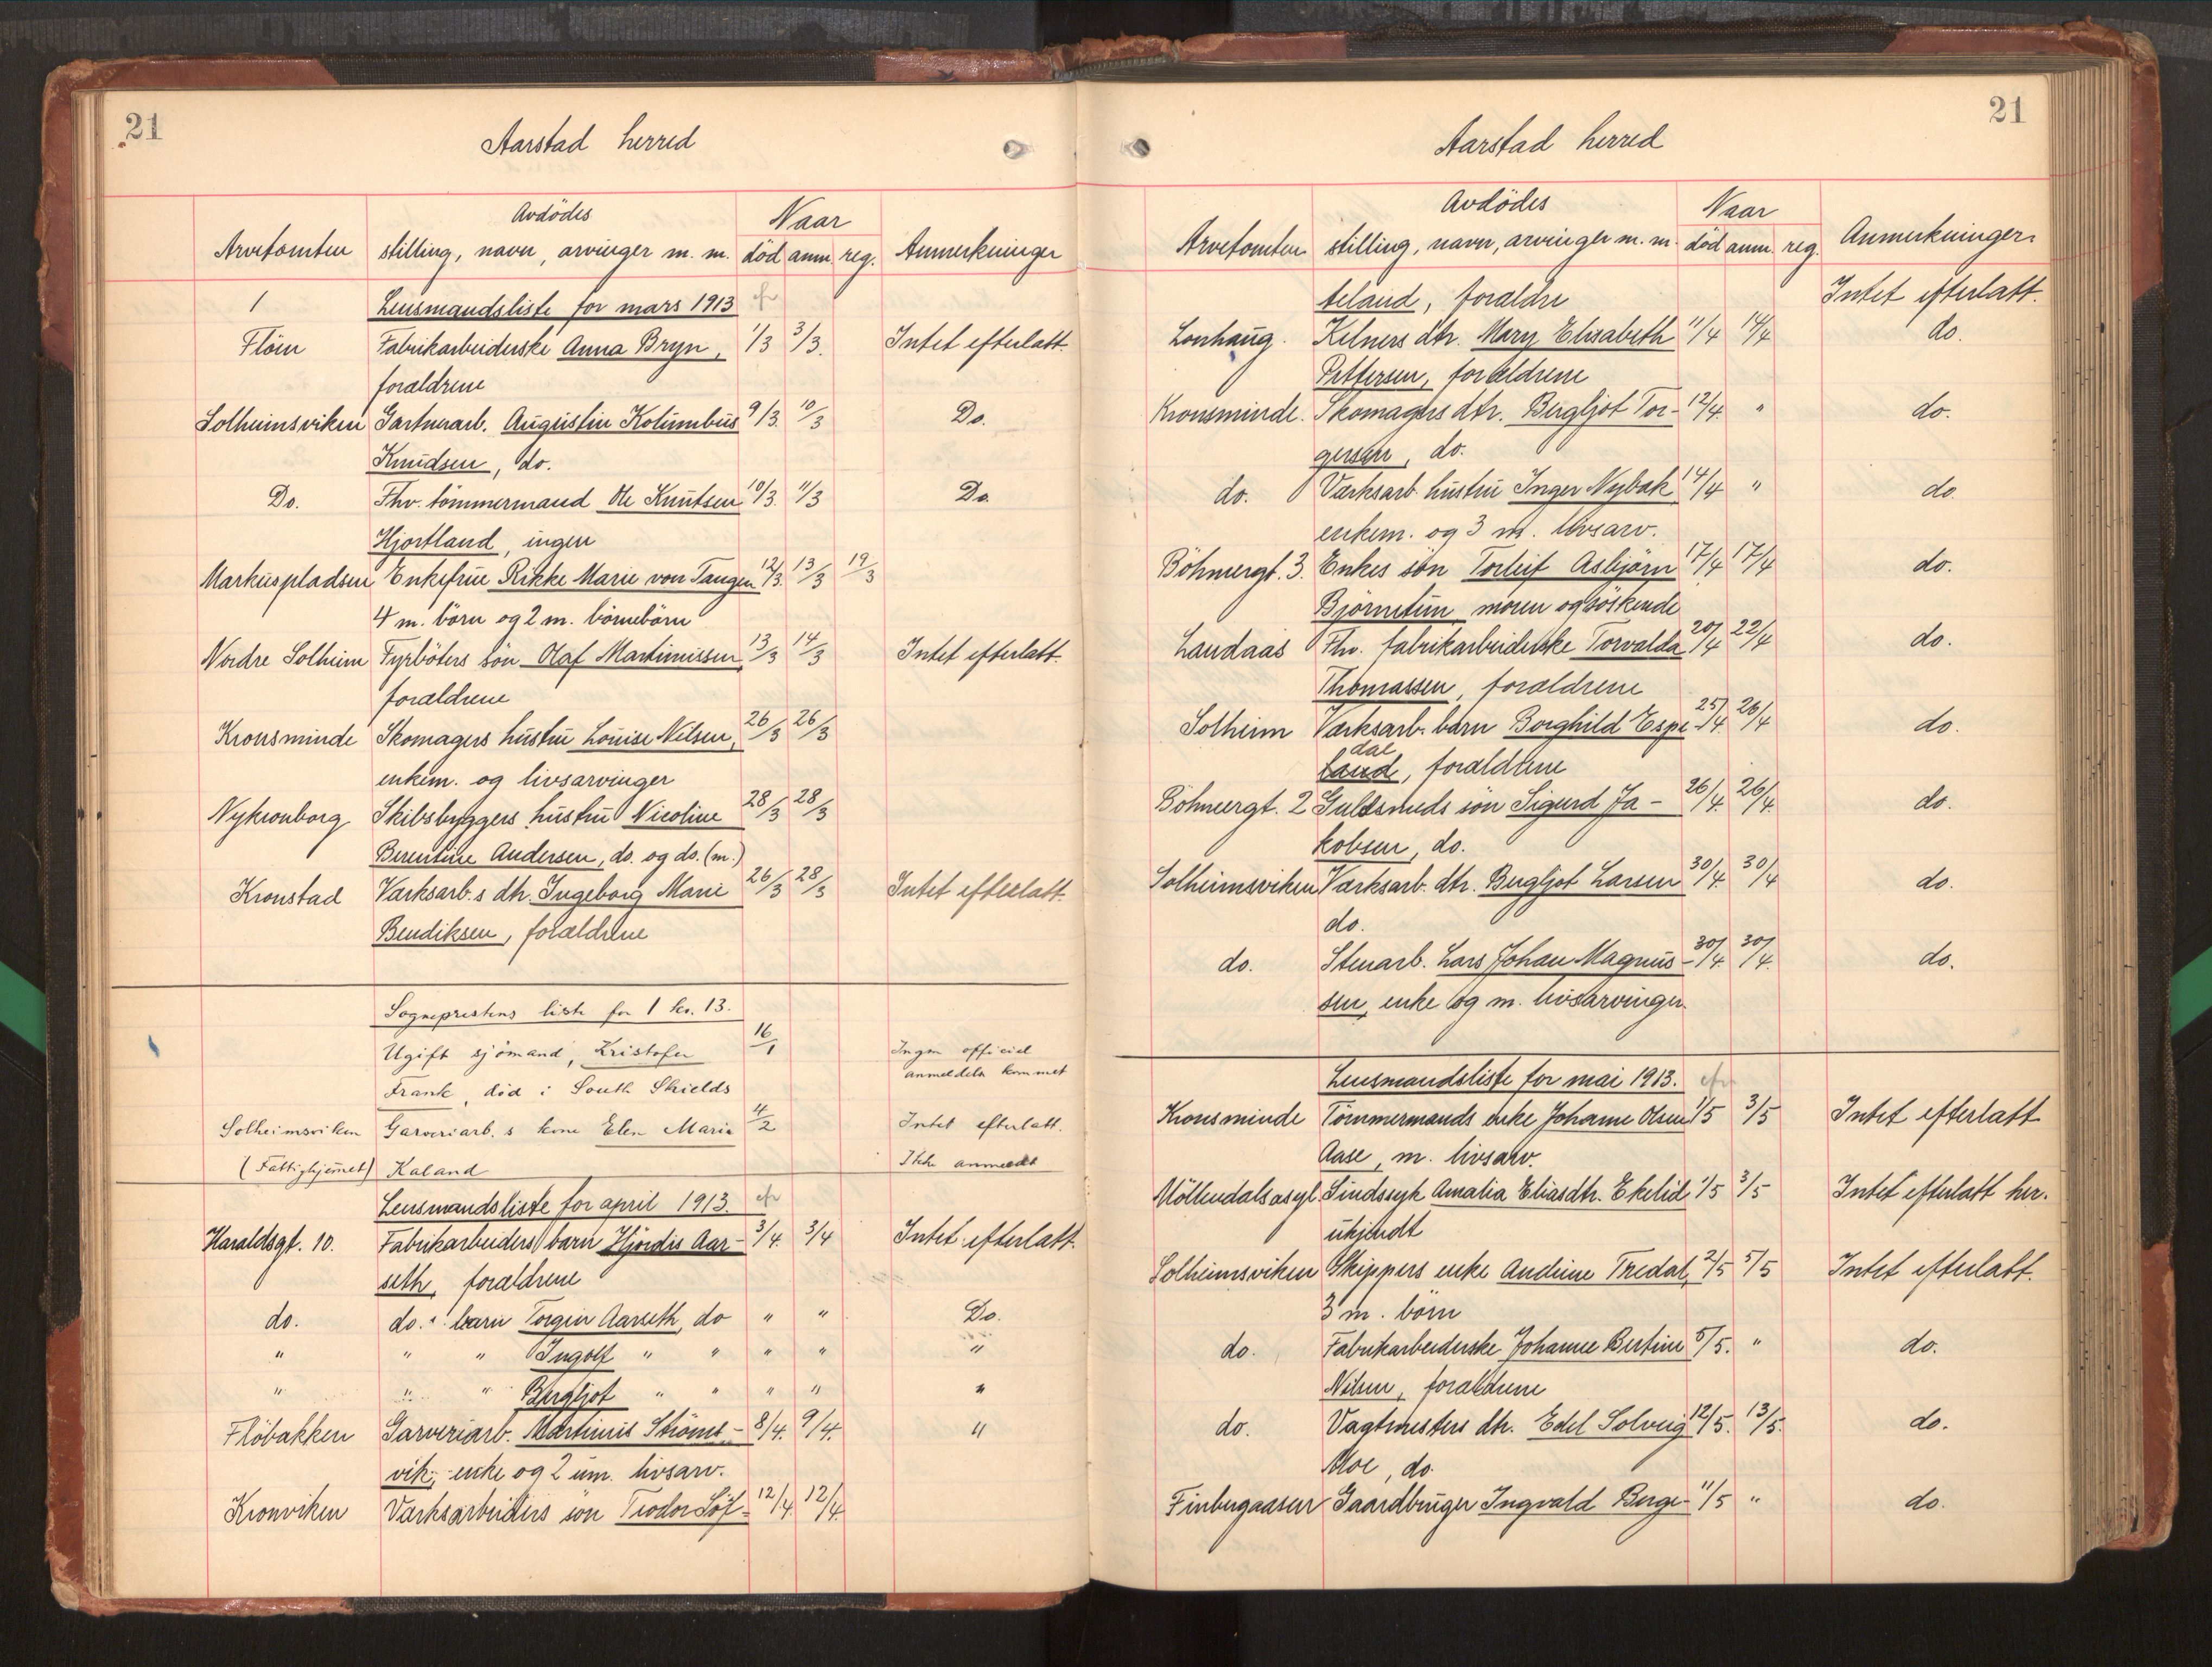 21
Aarstad herred
Avdödes
Naar
Arvetomten stilling, navn, arvinger m. m. död anm. reg. Anmerkninger
1 Lensmandsliste for mars 1913
Flöien Fabrikarbeiderske Anna Bryn, 1/3 3/3. Intet efterlatt.
forældrene
Solheimsviken Gartnerarb. Augustin Kolumbus 9/3. 10/3 Do.
Knudsen, do.
Do. Fhv. tömmermand Ole Knutsen 10/3. 11/3 Do.
Hjortland, ingen
Markuspladsen Enkefrue Rikke Marie von Tangen 12/3. 13/3 19/3
4 m. börn og 2 m. börnebörn
Nordre Solheim Fyrböters sön Olaf Martinussen, 13/3 14/3 Intet efterlatt.
forældrene
Kronsminde Skomagers hustru Louise Nilsen, 26/3 26/3
enkem. og livsarvinger
Nykronborg Skibsbyggers hustru Nicoline 28/3 28/3
Berentine Andersen, do. og do. (m.)
Kronstad Værksarb.s dtr. Ingeborg Marie 26/3 28/3 Intet efterlatt.
Bendiksen, forældrene
Sogneprestens liste for 1 kv. 13.
Ugift sjömand, Kristofer 16/1 Ingen officiel
anmeldelse kommet
Frank, död i South Shields
Solheimsviken Garveriarb.s kone Elen Marie 4/2 Intet efterlatt.
(Fattighjemmet) Kaland Ikke anmeldt
Lensmandsliste for april 1913.
Haraldsgt. 10. Fabrikarbeiders barn Hjördis Aar- 3/4. 3/4 Intet efterlatt.
seth, forældrene
do. do. s barn Torgin Aarseth, do " " Do.
" " " Ingolf " " " " "
" " " Bergljot " " " " "
Flöbakken Garveriarb. Martinus Ströms- 8/4. 9/4. "
vik, enke og 2 um. livsarv.
Kronviken Værksarbeiders sön Teodor Löf- 12/4. 12/4.
21
Aarstad herred
Avdödes
Naar
Arvetomten stilling, navn, arvinger m. m. död anm. reg. Anmerkninger
teland, forældre Intet efterlatt.
Lonhaug. Kelners dtr. Mary Elisabeth 11/4 14/4 do.
Pettersen, forældrene
Kronsminde. Skomagers dtr. Bergljot Tor- 12/4. " do.
gersen, do.
do. Værksarb. hustru Inger Nybak 14/4 " do.
enkem. og 3 m. livsarv.
Böhmergt. 3. Enkes sön Torleif Asbjörn 17/4 17/4 do.
Björnetun, moren og söskende
Landaas Fhv. fabrikarbeiderske Torvalda 20/4 22/4 do.
Thomassen, forældrene
Solheim Værksarb. barn Borghild Espe- 25/4. 26/4 do.
dal
land, forældrene
Böhmergt. 2 Guldsmeds sön Sigurd Ja- 26/4. 26/4. do.
kobsen, do.
Solheimsviken Værksarb. dtr. Bergljot Larsen 30/4. 30/4 do.
do.
do. Stenarb. Lars Johan Magnus- 30/4. 30/4. do.
sen, enke og m. livsarvinger.
Lensmandsliste for mai 1913.
Kronsminde Tömmermands enke Johanne Olsen 1/5 3/5 Intet efterlatt
Aase, m. livsarv.
Möllendalsasyl. Sindssyk Amalia Eliasdtr. Ekelid 1/5 3/5 Intet efterlatt her.
ukjendt
Solheimsviken Skippers enke Andrine Tredal, 2/5 5/5 Intet efterlatt.
3 m. börn
do. Fabrikarbeiderske Johanne Bertine 5/5. " do.
Nilsen, forældrene
do. Vagtmesters dtr. Edel Solveig 12/5. 13/5. do.
Moe, do.
Finbergaasen Gaardbruger Ingvald Berge- 11/5 " do.